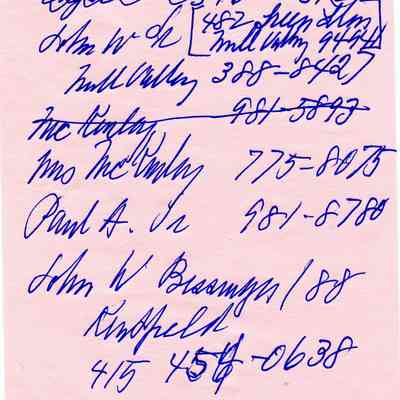 482
John W Jr Mill Valley 94941
Mill Valley 388-8427
McKinley 981-5893
Mrs McKinley 775-8075
Paul A. Jr 981-8780
John W Bissinger / 88
Kentfield
415 456-0638